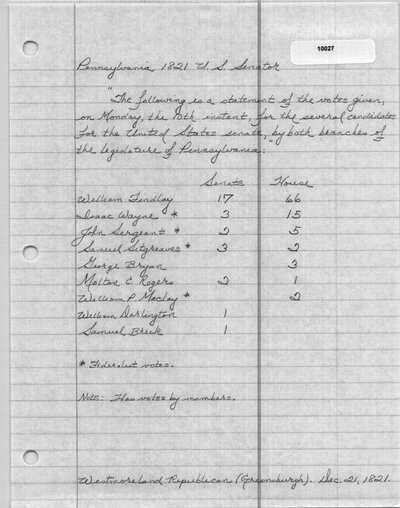 10027
Pennsylvania 1821 U. S. Senator
"The following is a statement of the votes given,
on Monday, the 10th instant, for the several candidates
for the United States senate, by both branches of
the legislature of Pennsylvania:"
Senate House
William Findlay 17 66
Isaac Wayne * 3 15
John Sergeant * 2 5
Samuel Sitgreaves * 3 2
George Bryan 3
Molton C. Rogers 2 1
William P. Maclay * 2
William Darlington 1
Samuel Breck 1
* Federalist votes.
Note: Has votes by members.
Westmoreland Republican (Greensburgh). Dec. 21, 1821.